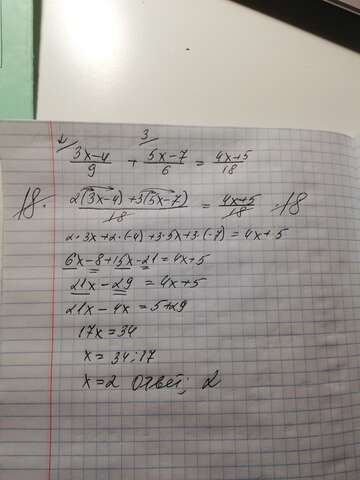 2/ 3/
(3x-4)/9 + (5x-7)/6 = (4x+5)/18
18. (2(3x-4)+3(5x-7))/18 = (4x+5)/18 .18
2·3x+2·(-4)+3·5x+3·(-7)=4x+5
6x-8+15x-21=4x+5
21x-29=4x+5
21x-4x=5+29
17x=34
x=34:17
x=2 Ответ: 2